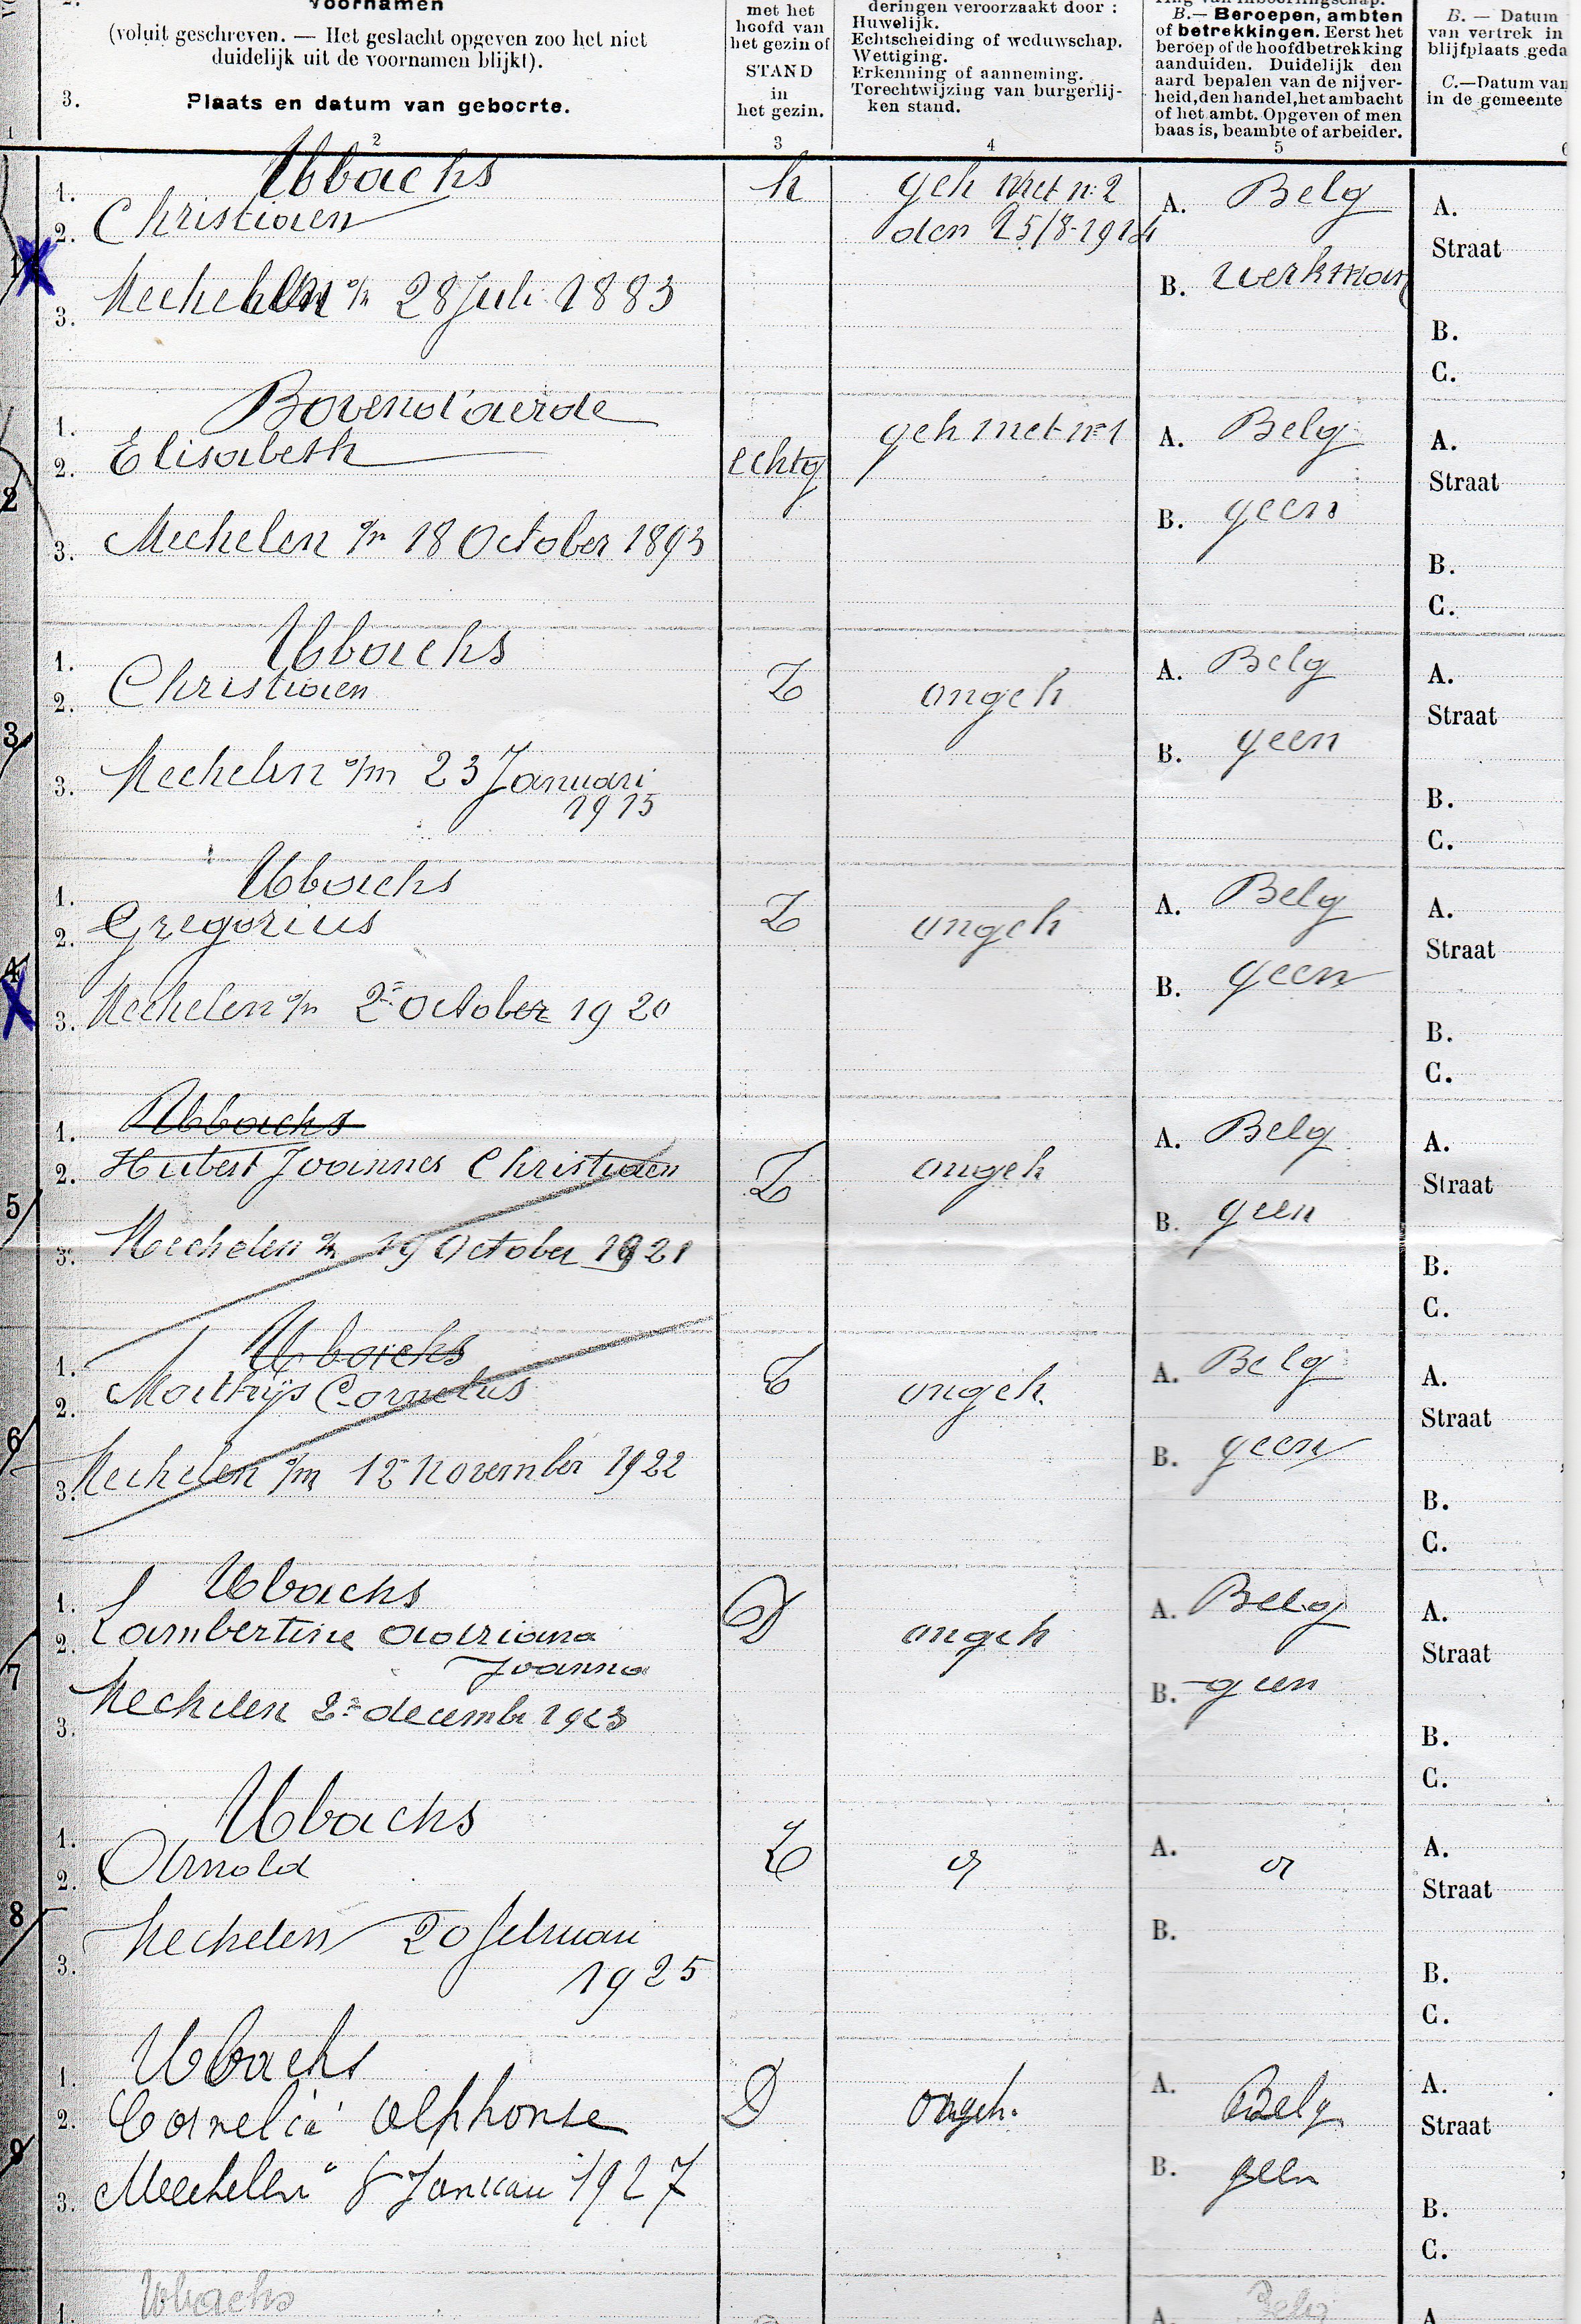 voornamen
(voluit geschreven. — Het geslacht opgeven zoo het niet
duidelijk uit de voornamen blijkt).
3. Plaats en datum van geboorte.
met het
hoofd van
het gezin of
STAND
in
het gezin.
deringen veroorzaakt door :
Huwelijk.
Echtscheiding of weduwschap.
Wettiging.
Erkenning of aanneming.
Terechtwijzing van burgerlij-
ken stand.
B.— Beroepen, ambten
of betrekkingen. Eerst het
beroep of de hoofdbetrekking
aanduiden. Duidelijk den
aard bepalen van de nijver-
heid, den handel, het ambacht
of het ambt. Opgeven of men
baas is, beambte of arbeider.
B. — Datum
van vertrek in
blijfplaats geda
C.—Datum van
in de gemeente
1 2 3 4 5 6
1. Ubachs h geh met n: 2 A. Belg A.
2. Christiaen den 25/8-1914 Straat
1 B. werkman
3. Mechelen o/m 28 Juli 1883 B.
C.
1. Bovend'aerde geh met n=1 A. Belg A.
2. Elisabeth echtg Straat
2 B. geen
3. Mechelen o/m 18 October 1893 B.
C.
1. Ubachs A. Belg A.
2. Christiaen Z ongeh Straat
3 B. geen
3. Mechelen o/m 23 Januari
1915 B.
C.
1. Ubachs A. Belg A.
2. Gregorius Z ongeh Straat
4 B. geen
3. Mechelen o/m 2 October 1920 B.
C.
1. Ubachs A. Belg A.
2. Hubert Joannes Christiaen Z ongeh Straat
5 B. geen
3. Mechelen o/m 19 October 1921 B.
C.
1. Ubachs A. Belg A.
2. Mathijs Cornelus Z ongeh. Straat
6 B. geen
3. Mechelen o/m 12 November 1922 B.
C.
1. Ubachs D A. Belg A.
2. Lambertine Adriana ongeh Straat
Joanna
7 B. geen
3. Mechelen 2= decembr 1923 B.
C.
1. Ubachs A. A.
2. Arnold Z Straat
8 B.
3. Mechelen 20 februari
1925 B.
C.
1. Ubachs A. A.
2. Cornelia Alphonse D ongeh. Belg Straat
9 B. geen
3. Mechelen 8 Januari 1927 B.
C.
Ubachs Belg
1. A. A